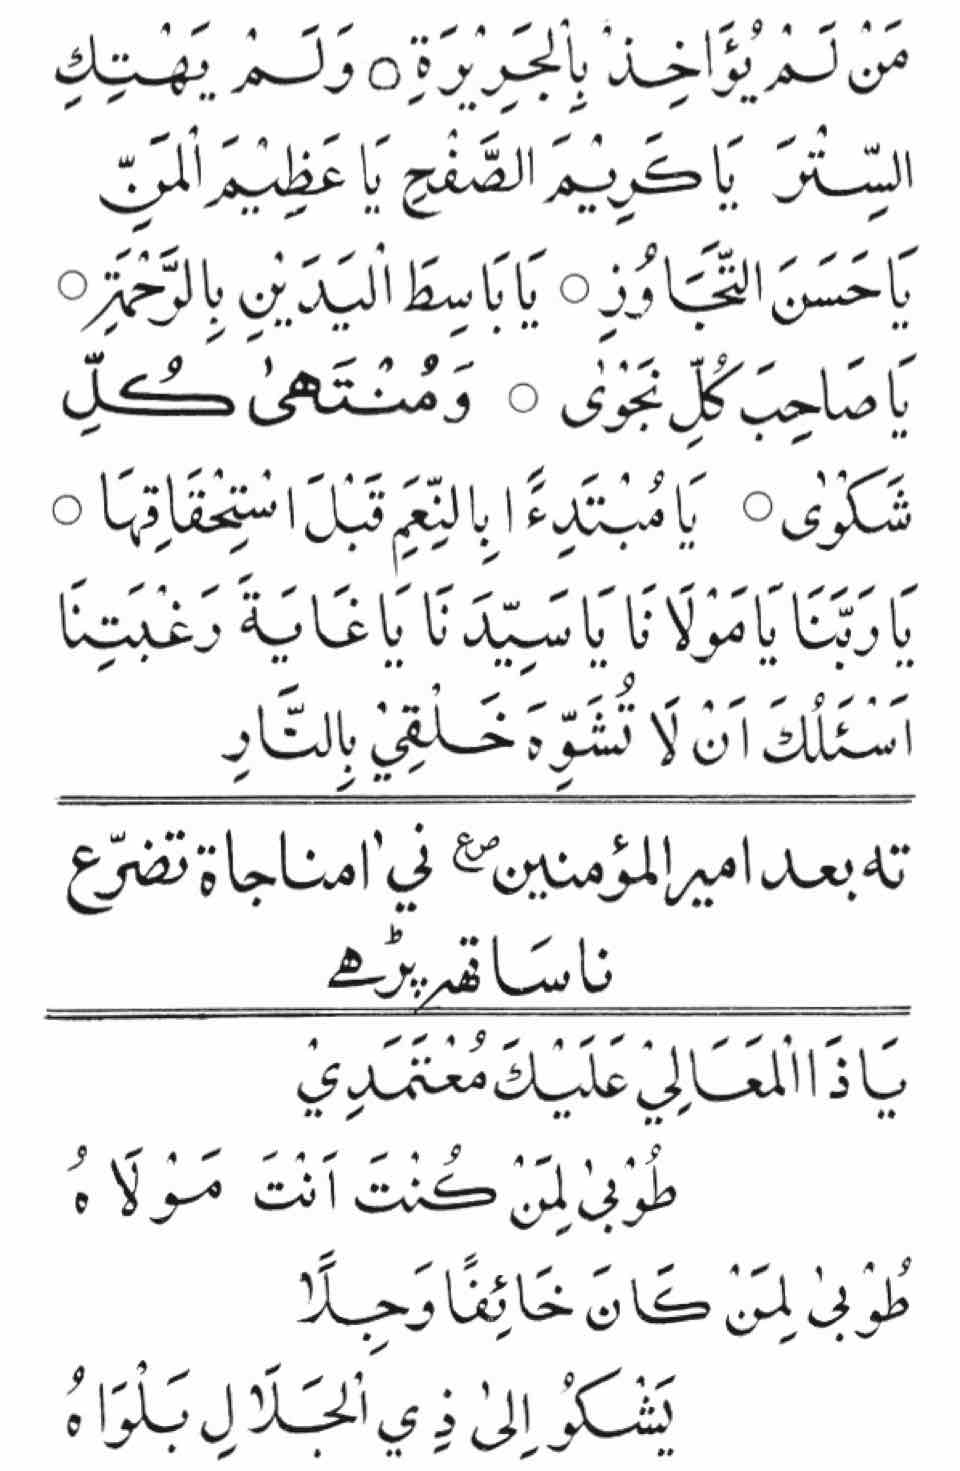 مَنْ لَمْ يُؤَاخِذْ بِالْجَرِيْرَةِ ○ وَلَمْ يَهْتِكِ
السِّتْرَ يَا كَرِيْمَ الصَّفْحِ يَا عَظِيْمَ الْمَنِّ
يَا حَسَنَ التَّجَاوُزِ ○ يَا بَاسِطَ الْيَدَيْنِ بِالرَّحْمَةِ ○
يَا صَاحِبَ كُلِّ نَجْوٰى ○ وَمُنْتَهىٰ كُلِّ
شَكْوٰى ○ يَا مُبْتَدِءًا بِالنِّعَمِ قَبْلَ اسْتِحْقَاقِهَا ○
يَا رَبَّنَا يَا مَوْلَانَا يَا سَيِّدَنَا يَا غَايَةَ رَغْبَتِنَا
اَسْئَلُكَ اَنْ لَا تُشَوِّهَ خَلْقِيْ بِالنَّارِ
ته بعد امير المؤمنين صع ني ا مناجاة تضرّع
نا سَاتهہ پڑهے
يَا ذَا الْمَعَالِيْ عَلَيْكَ مُعْتَمَدِيْ
طُوْبىٰ لِمَنْ كُنْتَ اَنْتَ مَوْلَاهُ
طُوْبىٰ لِمَنْ كَانَ خَائِفًا وَجِلًا
يَشْكُوْ اِلىٰ ذِي الْجَلَالِ بَلْوَاهُ